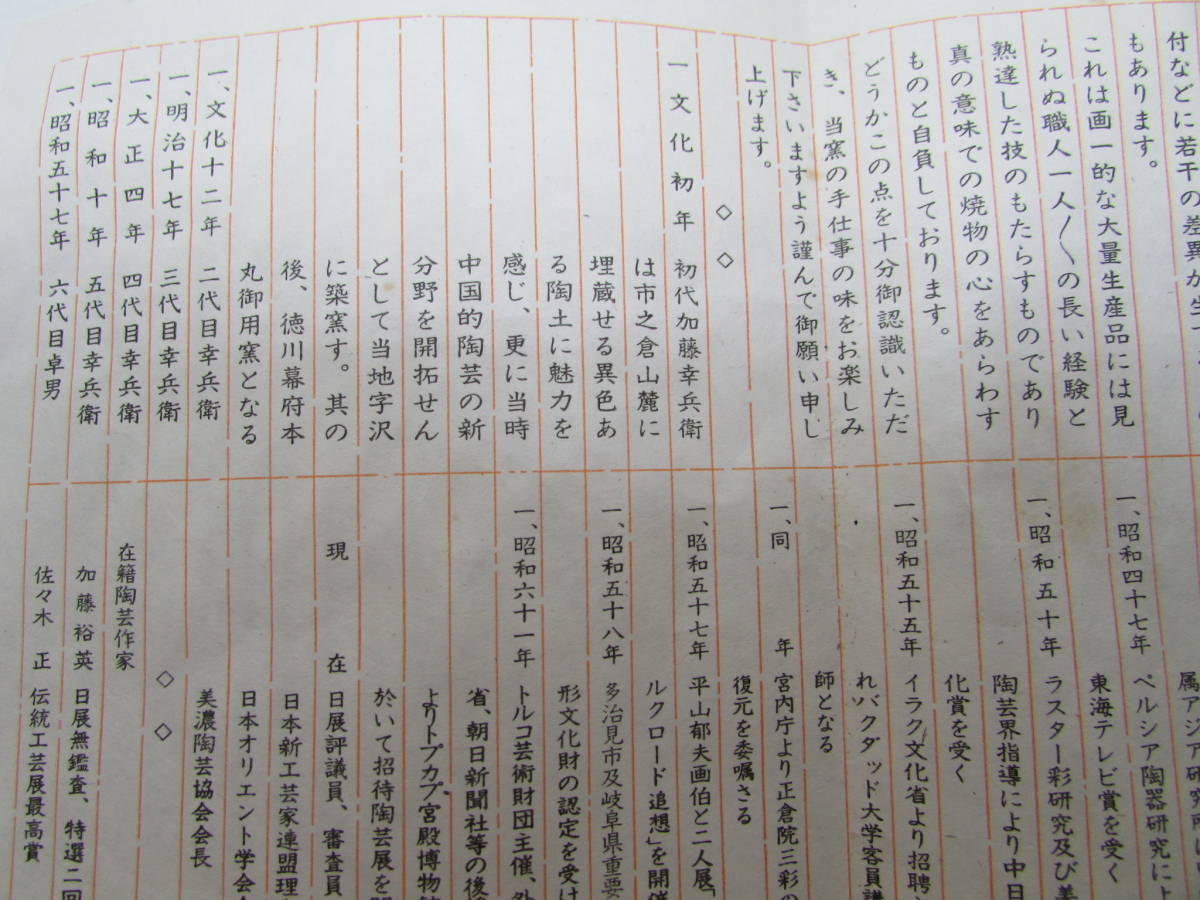 付などに若干の差異が生
もあります。
これは画一的な大量生産品には見
られぬ職人一人〳〵の長い経験と
熟達した技のもたらすものであり
真の意味での焼物の心をあらわす
ものと自負しております。
どうかこの点を十分御認識いただ
き、当窯の手仕事の味をお楽しみ
下さいますよう謹んで御願い申し
上げます。
◇ ◇
一 文化初年 初代加藤幸兵衛
は市之倉山麓に
埋蔵せる異色あ
る陶土に魅力を
感じ、更に当時
中国的陶芸の新
分野を開拓せん
として当地字沢
に築窯す。其の
後、徳川幕府本
丸御用窯となる
一、文化十二年 二代目幸兵衛
一、明治十七年 三代目幸兵衛
一、大正四年 四代目幸兵衛
一、昭和十年 五代目幸兵衛
一、昭和五十七年 六代目卓男
属アジア研究所に
一、昭和四十七年 ペルシア陶器研究によ
東海テレビ賞を受く
一、昭和五十年 ラスター彩研究及び美
陶芸界指導により中日
化賞を受く
一、昭和五十五年 イラク文化省より招聘
れバクダッド大学客員講
師となる
一、同年 宮内庁より正倉院三彩の
復元を委嘱さる
一、昭和五十七年 平山郁夫画伯と二人展「
ルクロード追想」を開催
一、昭和五十八年 多治見市及岐阜県重要
形文化財の認定を受け
一、昭和六十一年 トルコ芸術財団主催、外
省、朝日新聞社等の後
よりトプカプ宮殿博物
於いて招待陶芸展を開
現在 日展評議員、審査員
日本新工芸家連盟理
日本オリエント学会
美濃陶芸協会会長
◇ ◇
在籍陶芸作家
加藤裕英 日展無鑑査、特選二回
佐々木正 伝統工芸展最高賞